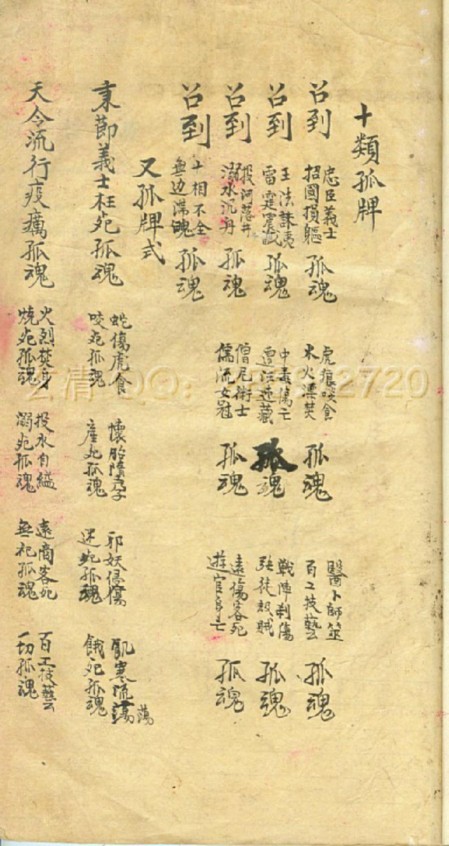 十類孤牌
召到 忠臣義士 招國損軀 孤魂 虎狼咬食 水火漂焚 孤魂 醫卜師筮 百工技藝 孤魂
召到 王法誅夷 雷霆震滅 孤魂 中毒傷亡 孤魂 戰陣刑傷 強徒殺賊 孤魂
召到 投河落井 溺水沉舟 孤魂 僧尼術士 儒流女冠 孤魂 遠傷客死 遊官身亡 孤魂
召到 十相不全 無边滞魄 孤魂
又孤牌式
秉節義士枉死孤魂 蛇傷虎食 咬死孤魂 懷胎墮孕 産死孤魂 邪妖侵傷 迷死孤魂 飢寒流蕩 餓死孤魂
天令流行疫癘孤魂 火烈焚身 燒死孤魂 投水自縊 溺死孤魂 遠商客死 無祀孤魂 百工技藝 一切孤魂
云清QQ: 2720